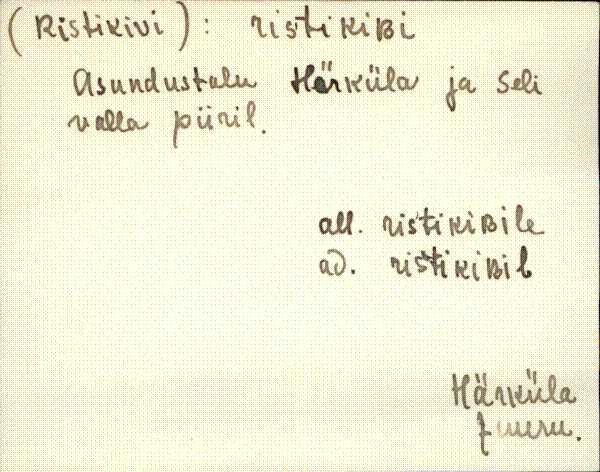 (Ristikivi): ristikiʙi
Asundustalu Härküla ja Seli
valla piiril.
all. ristikiʙile
ad. ristikiʙil
Härküla